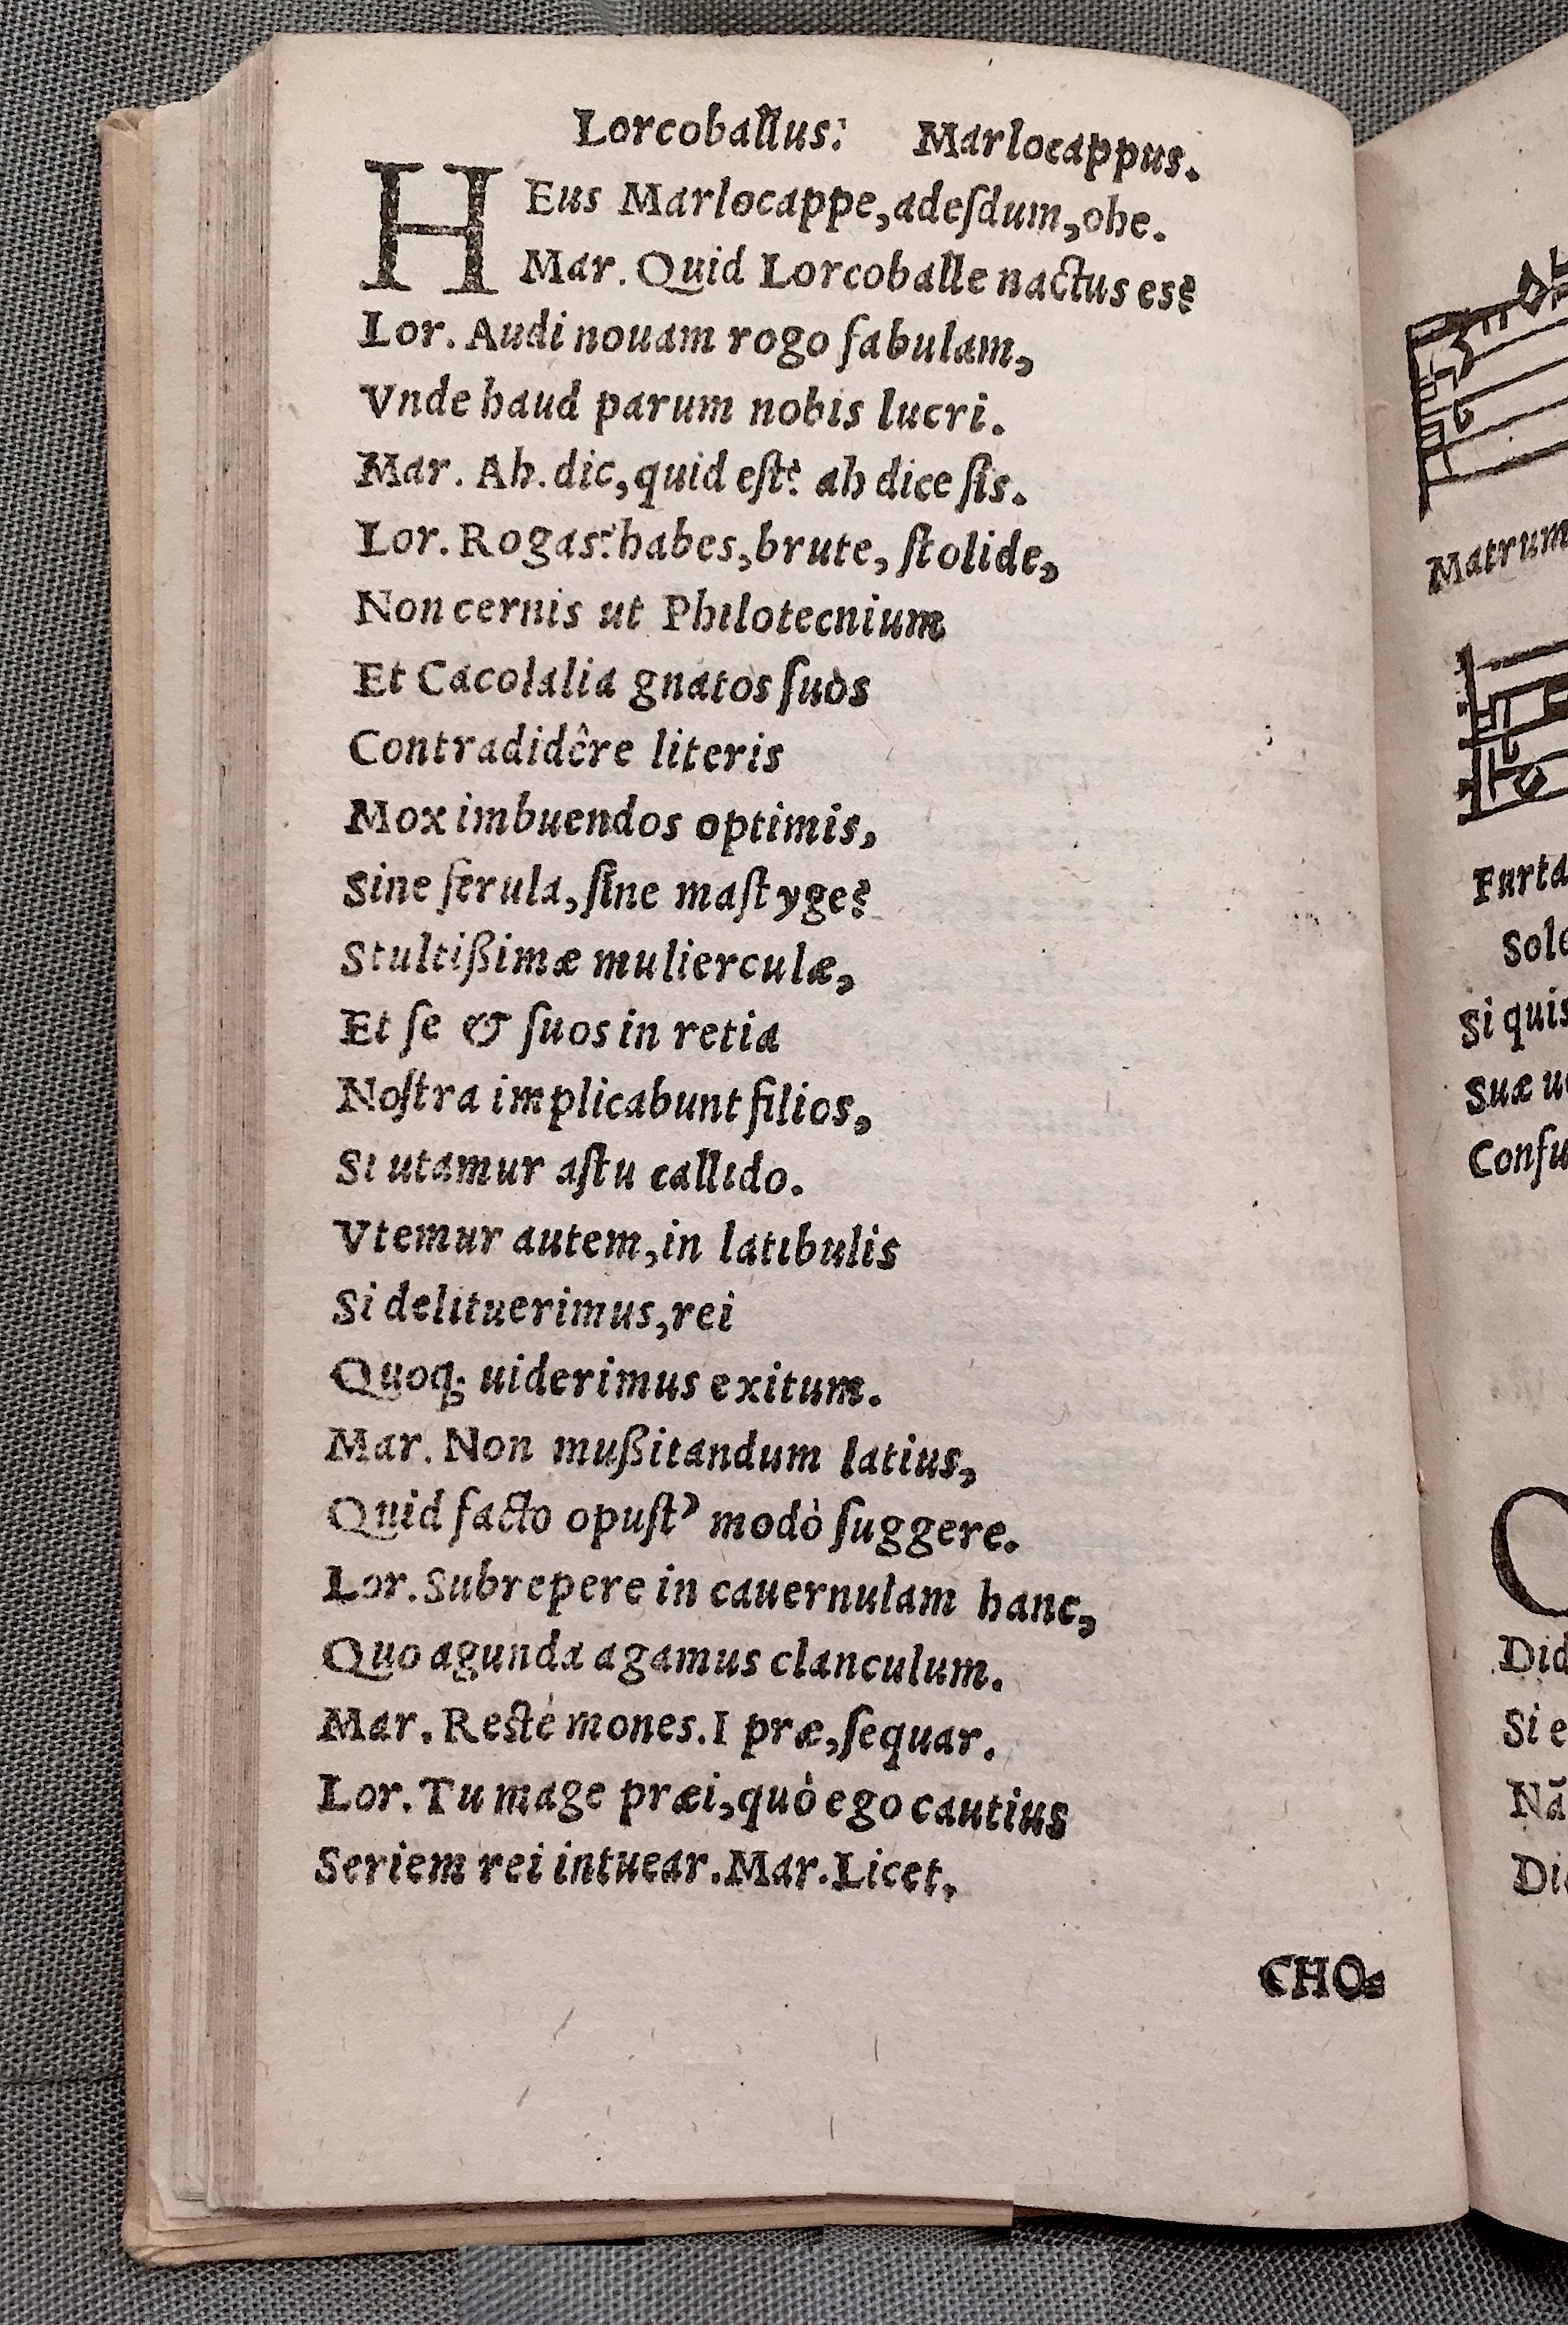 Lorcoballus: Marlocappus.
HEus Marlocappe, adeſdum, ohe.
Mar. Quid Lorcoballe nactus es?
Lor. Audi nouam rogo fabulam,
Vnde haud parum nobis lucri.
Mar. Ah. dic, quid eſt? ah dice ſis.
Lor. Rogas? habes, brute, ſtolide,
Non cernis ut Philotecnium
Et Cacolalia gnatos ſuos
Contradidêre literis
Mox imbuendos optimis,
Sine ferula, ſine maſtyge?
Stultißimæ mulierculæ,
Et ſe & ſuos in retia
Noſtra implicabunt filios,
Si utamur aſtu callido.
Vtemur autem, in latibulis
Si delituerimus, rei
Quoq; uiderimus exitum.
Mar. Non mußitandum latius,
Quid facto opuſt? modò ſuggere.
Lor. Subrepere in cauernulam hanc,
Quo agunda agamus clanculum.
Mar. Rectè mones. I præ, ſequar.
Lor. Tu mage præi, quò ego cautius
Seriem rei intuear. Mar. Licet.
CHO-
Matrum
Furta
Sole
Si quis
Suæ
Did
Si e
Nā